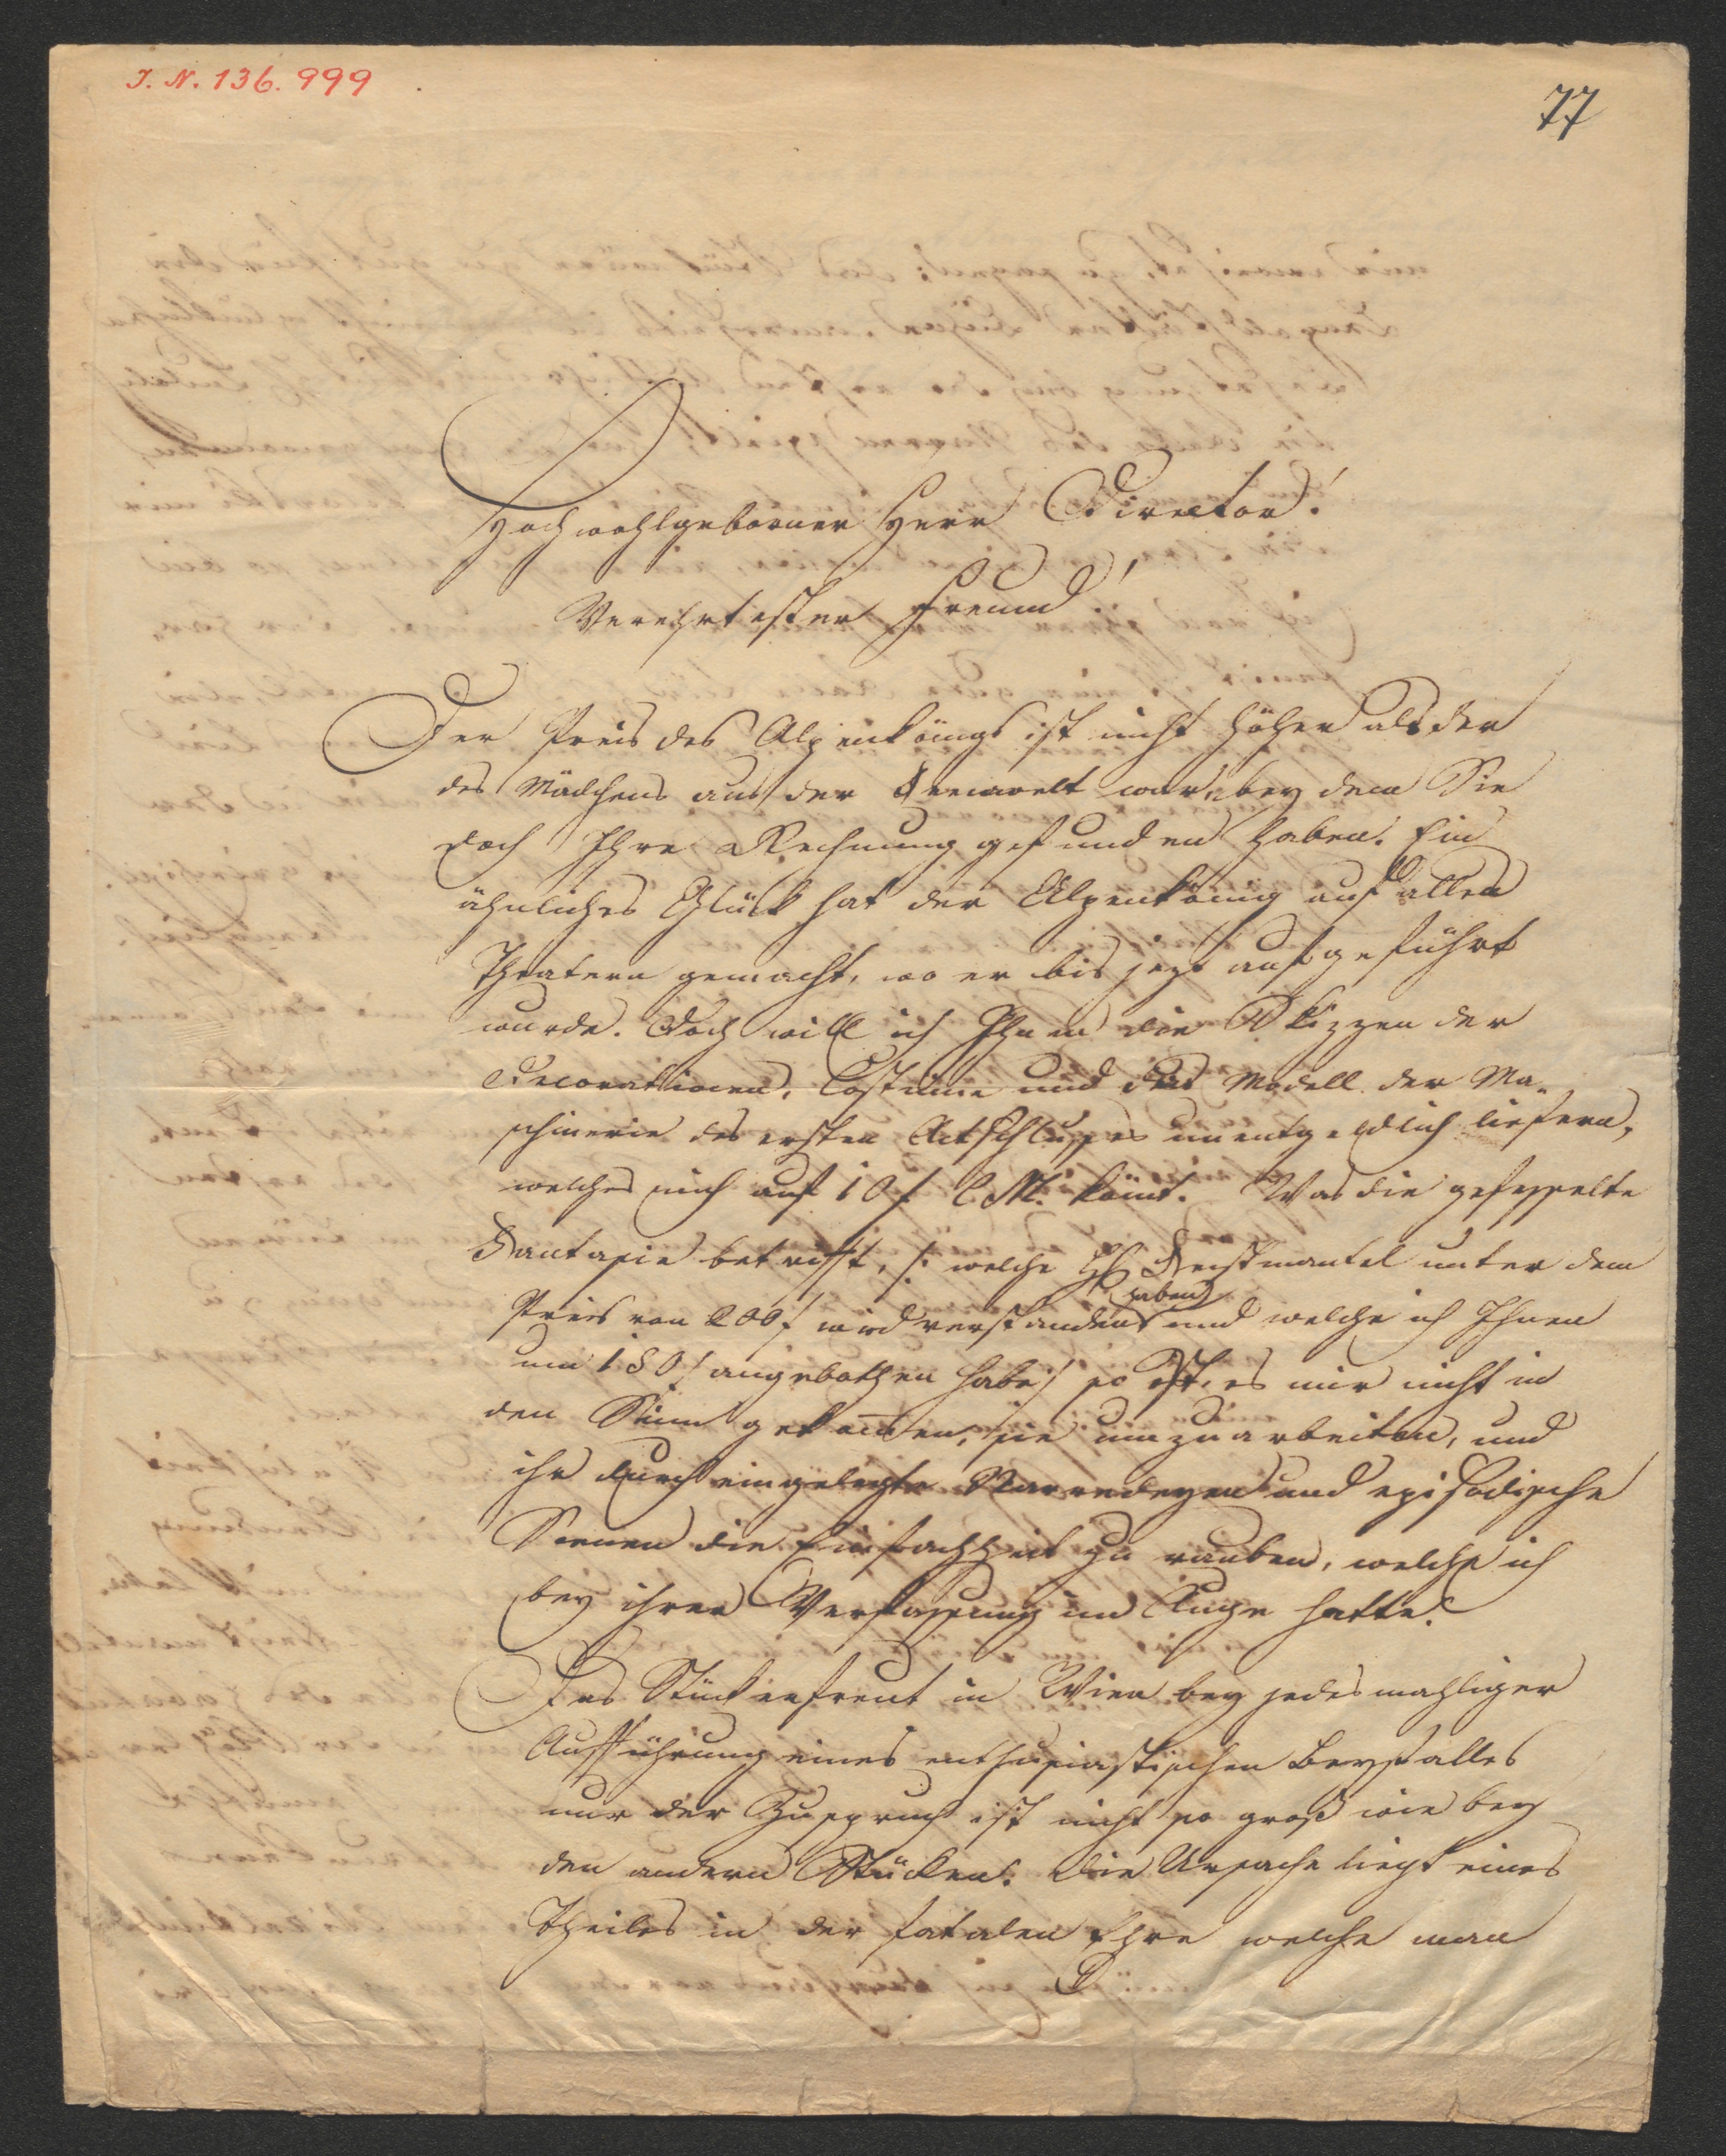 I. N. 136.999
77
Hochwohlgeborner Herr Director!
Verehrtester Freund!
Der Preis des Alpenkönigs ist nicht höher als der
des Mädchens aus der Feenwelt war, bey dem Sie
doch Ihre Rechnung gefunden haben. Ein
ähnliches Glück hat der Alpenkönig auf allen
Theatern gemacht, wo er bis jezt aufgeführt
wurde. Doch will ich Ihnen die Skizzen der
Decorationen, Costume und das Modell der Ma-
schinerie des ersten Actschlusses unentgeldlich liefern,
welches mich auf 10 f C M. kömt. Was die gefesselte
Fantasie betrifft, /: welche H. Feistmantel unter dem
haben
Preis von 200 f wird verstanden und welche ich Ihnen
um 150 f angebothen habe :/ so ist es mir nicht in
den Sinn gekom̄en, sie umzuarbeiten, und
ihr durch eingelegte Narredeyen und episodische
Scenen die Einfachheit zu rauben, welche ich
bey ihrer Verfassung im Auge hatte.
Das Stück erfreut in Wien bey jedesmahliger
Aufführung eines enthusiastischen Beyfalles
nur der Zuspruch ist nicht so groß wie bey
den andern Stücken. Die Ursache liegt eines
Theiles in der fatalen Ehre welche man